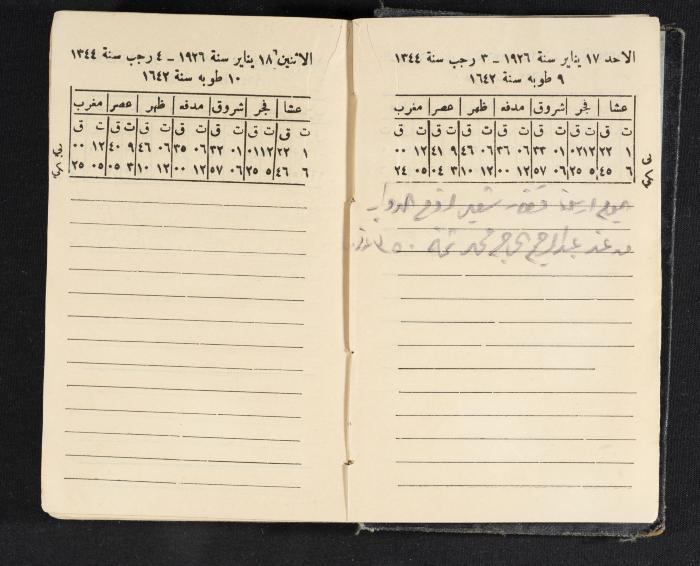 الاحد ١٧ يناير سنة ١٩٢٦ ــ ٣ رجب سنة ١٣٤٤
٩ طوبه سنة ١٦٤٢
عشا فجر شروق مدفه ظهر عصر مغرب
ت ق ت ق ت ق ت ق ت ق ت ق ت ق
١ ٢٢ ١٢ ٠٢ ٠١ ٣٣ ٠٦ ٣٦ ٠٦ ٤٦ ٩ ٤١ ١٢ ٠٠
٦ ٤٥ ٥ ٢٥ ٠٦ ٥٧ ١٢ ٠٠ ١٢ ١٠ ٣ ٠٤ ٠٥ ٢٤
شعير
عند محمد
الاثنين ١٨ يناير سنة ١٩٢٦ ــ ٤ رجب سنة ١٣٤٤
١٠ طوبه سنة ١٦٤٢
عشا فجر شروق مدفه ظهر عصر مغرب
ت ق ت ق ت ق ت ق ت ق ت ق ت ق
١ ٢٢ ١٢ ٠١ ٠١ ٣٢ ٠٦ ٣٥ ٠٦ ٤٦ ٩ ٤٠ ١٢ ٠٠
٦ ٤٦ ٥ ٢٥ ٠٦ ٥٧ ١٢ ٠٠ ١٢ ١٠ ٣ ٠٥ ٠٥ ٢٥